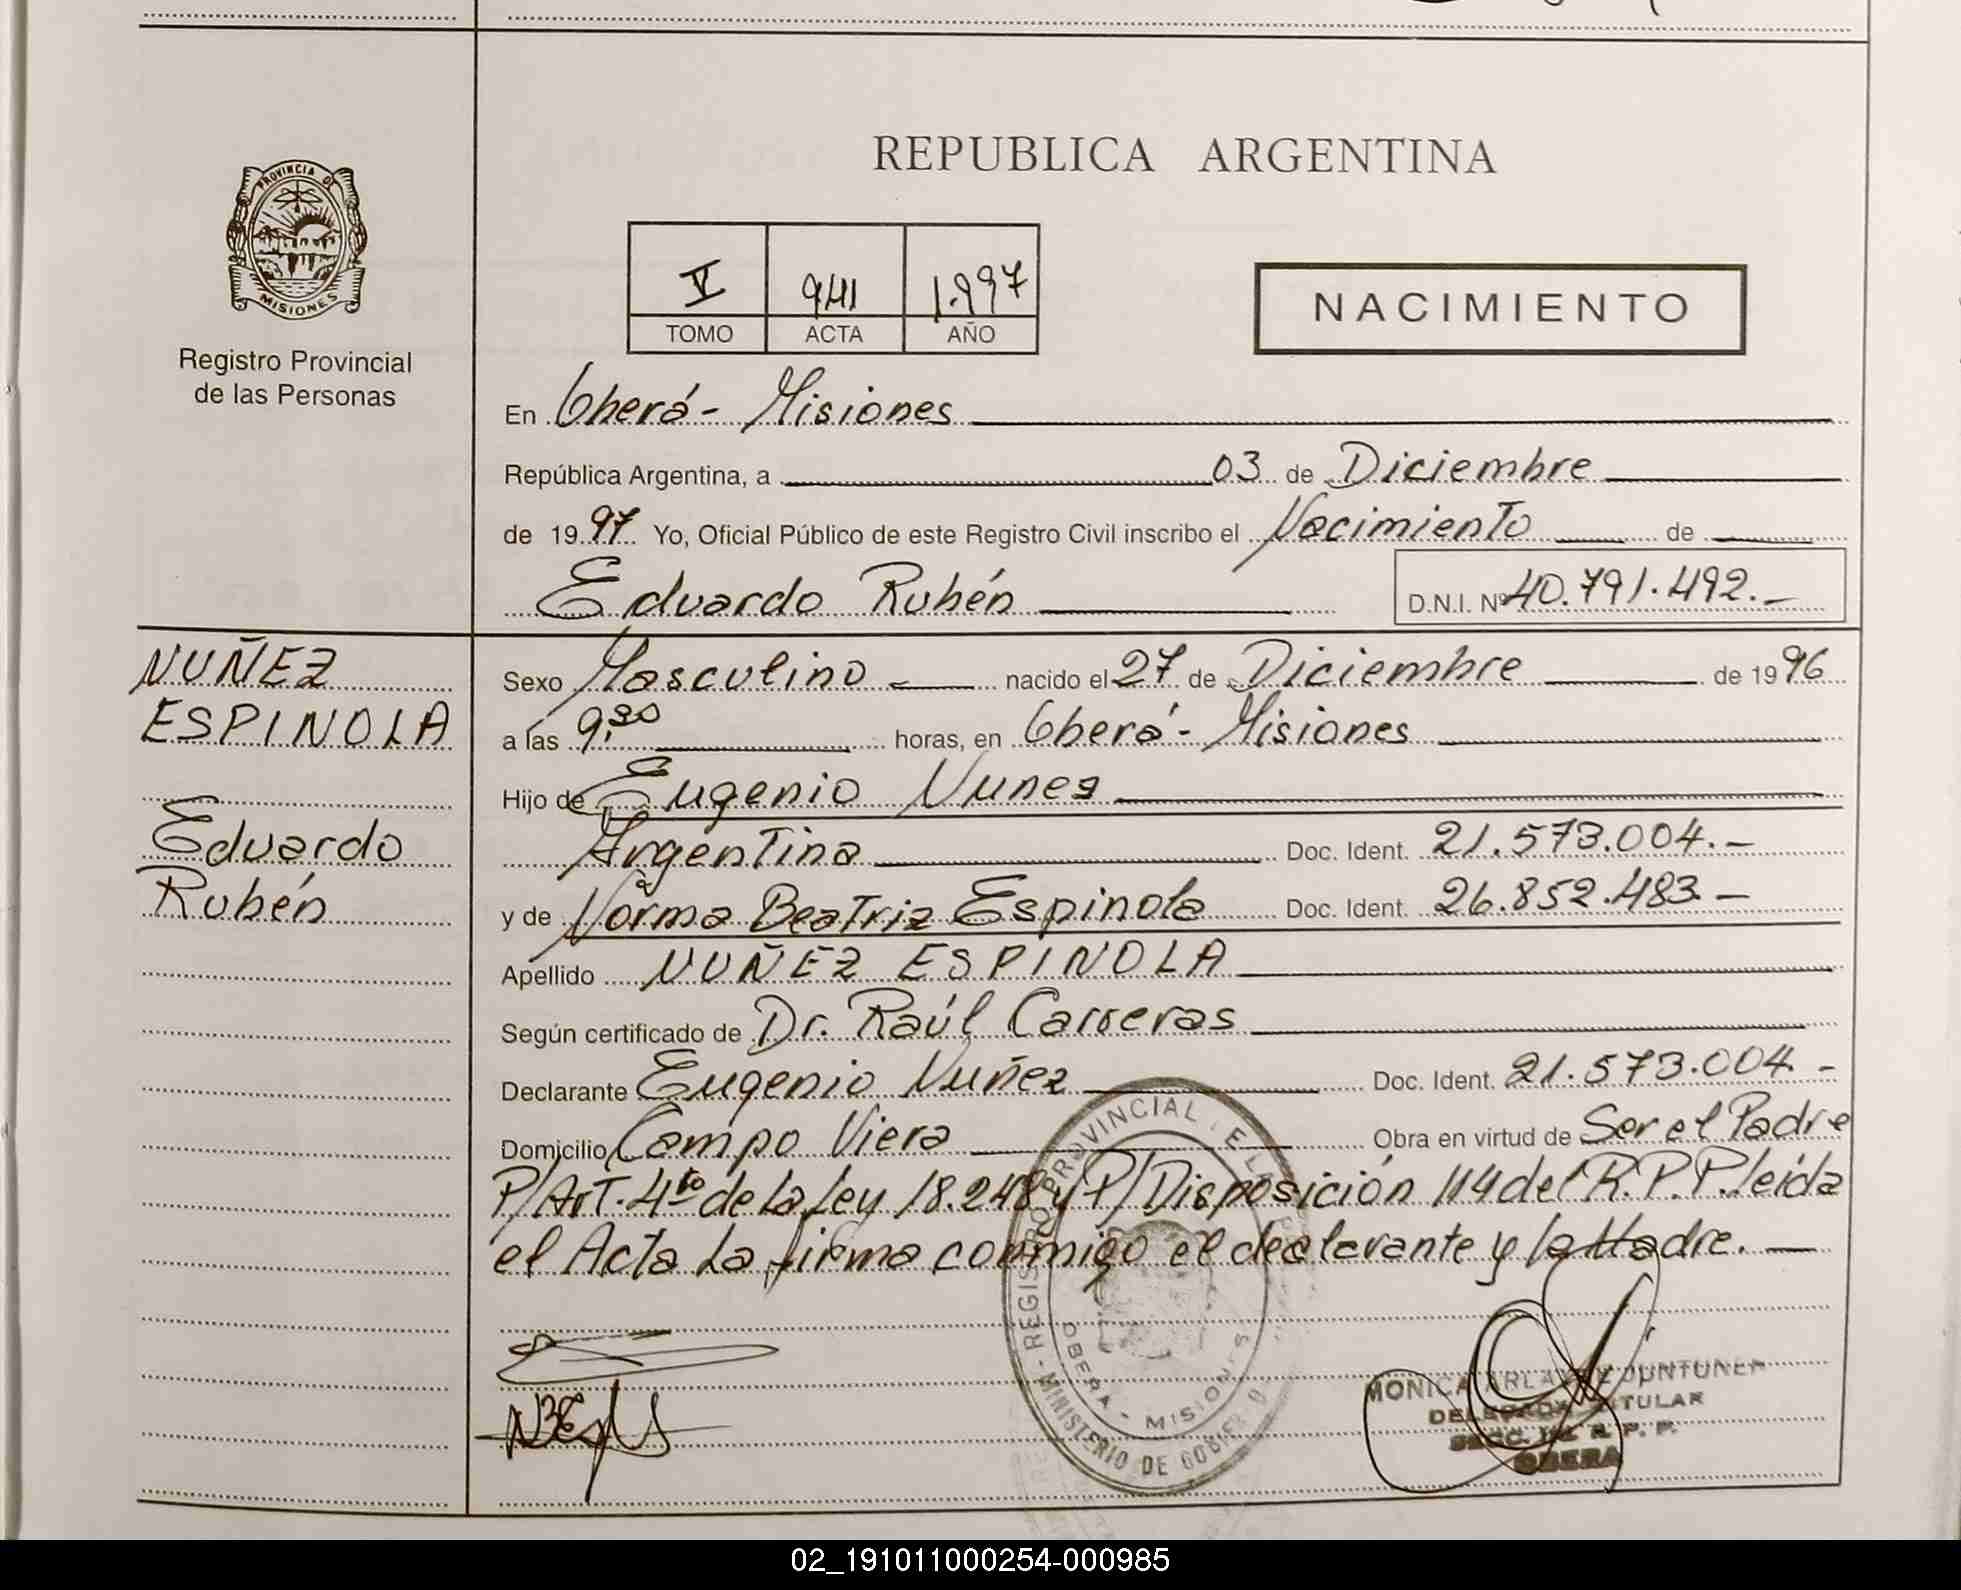 PROVINCIA DE
MISIONES
Registro Provincial
de las Personas
REPUBLICA ARGENTINA
V 941 1.997
TOMO ACTA AÑO
NACIMIENTO
En Oberá - Misiones
República Argentina, a 03 de Diciembre
de 1997 Yo, Oficial Público de este Registro Civil inscribo el Nacimiento de
Eduardo Rubén D.N.I. Nº 40.791.492.-
NUÑEZ
ESPINOLA
Eduardo
Rubén
Sexo Masculino nacido el 27 de Diciembre de 1996
a las 9:30 horas, en Oberá - Misiones
Hijo de Eugenio Nunes
Argentina Doc. Ident. 21.573.004.-
y de Norma Beatriz Espinola Doc. Ident. 26.852.483.-
Apellido NUÑEZ ESPINOLA
Según certificado de Dr. Raúl Carreras
Declarante Eugenio Nuñez Doc. Ident. 21.573.004.-
Domicilio Campo Viera Obra en virtud de Ser el Padre
P/Art. 4to de la Ley 18.248 y P/Disposición 114 del R.P.P. leída
el Acta La firma conmigo el declarante y la Madre.
REGISTRO PROVINCIAL DE LA
OBERA - MISIONES
MINISTERIO DE GOBIERNO
MONICA
DELEGADA TITULAR
R. P. P.
OBERA
02_191011000254-000985